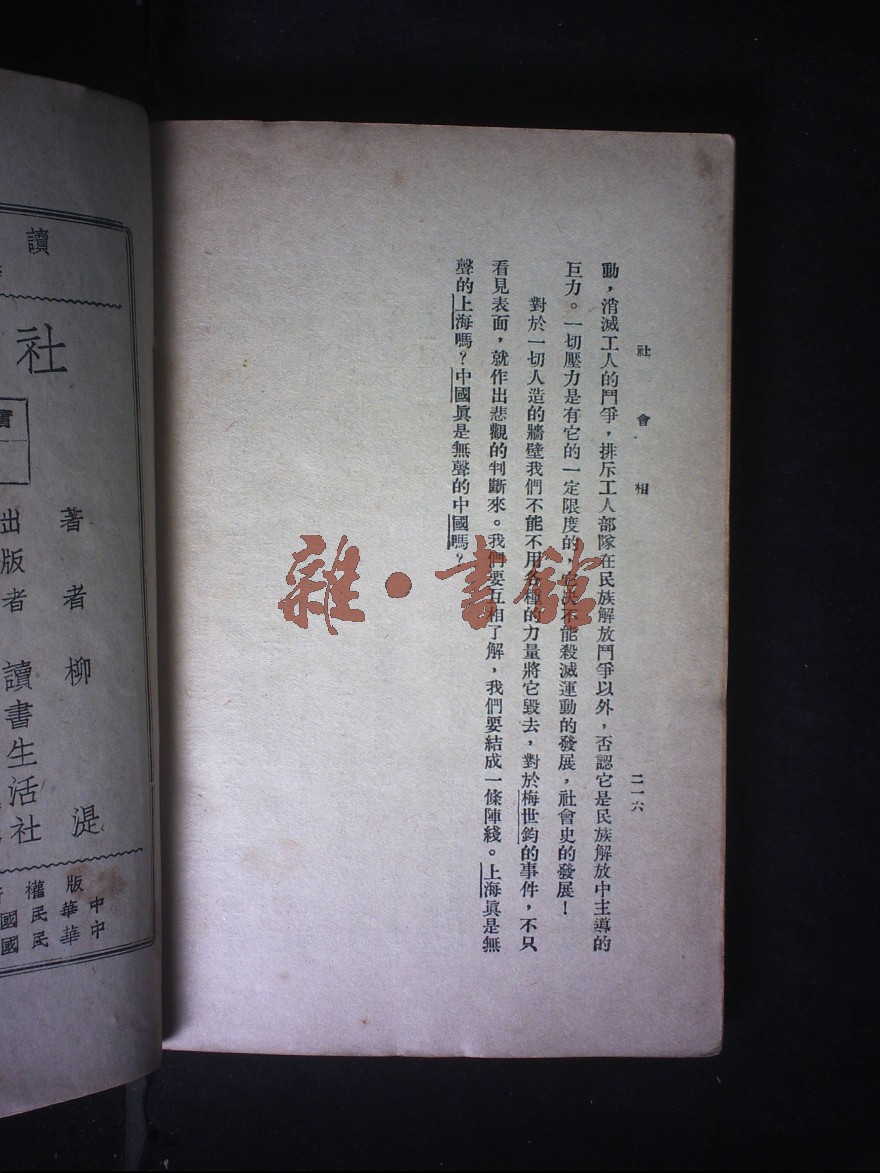 社會相
二一六
動，消滅工人的鬥爭，排斥工人部隊在民族解放鬥爭以外，否認它是民族解放中主導的
巨力。一切壓力是有它的一定限度的，它決不能殺滅運動的發展，社會史的發展！
對於一切人造的牆壁我們不能不用各種的力量將它毀去，對於梅世鈞的事件，不只
看見表面，就作出悲觀的判斷來。我們要互相了解，我們要結成一條陣綫。上海眞是無
聲的上海嗎？中國眞是無聲的中國嗎？
雜·書館
讀
社
著者 柳湜
出版者 讀書生活社
版權
中華民國
中華民國